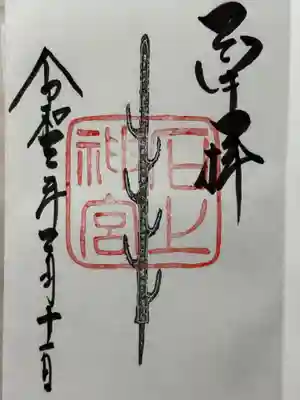 奉拝
石上
神宮
令和三年
月十一日